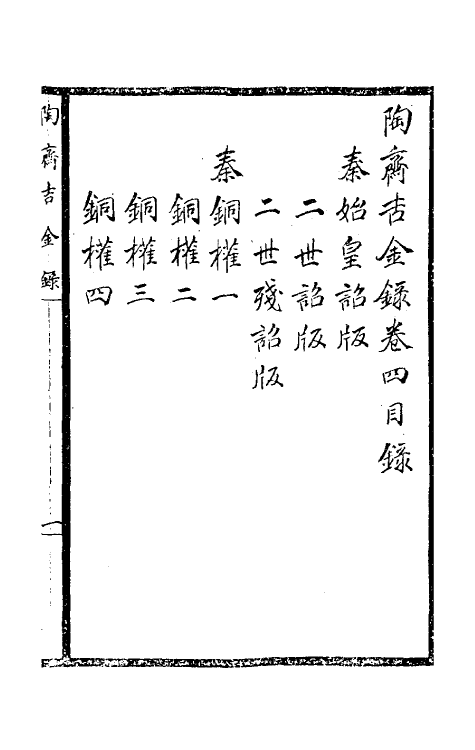 陶齋吉金錄卷四目錄
秦始皇詔版
二世詔版
二世殘詔版
秦銅權一
銅權二
銅權三
銅權四
陶齋吉金錄
一